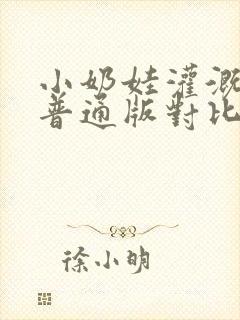 小奶娃灌溉
普通版對比
徐小明